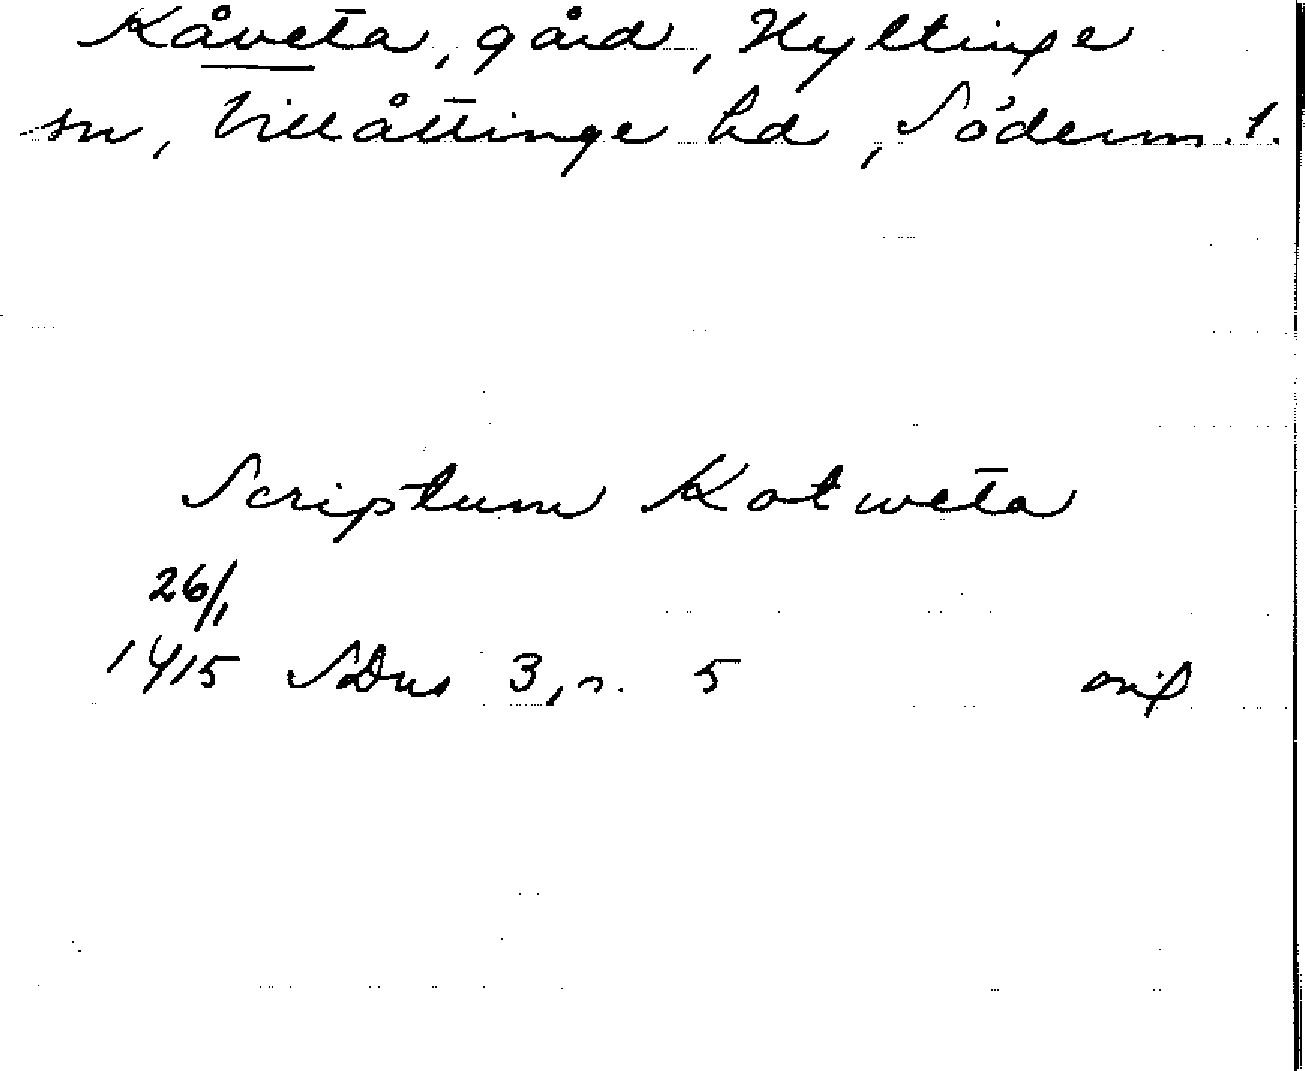 Kåveta, gård, Hyltinge
sn, Villåttinge hd, Söderm. l.
Scriptum Kotweta
26/1
1415 SDns 3, s. 5 orig